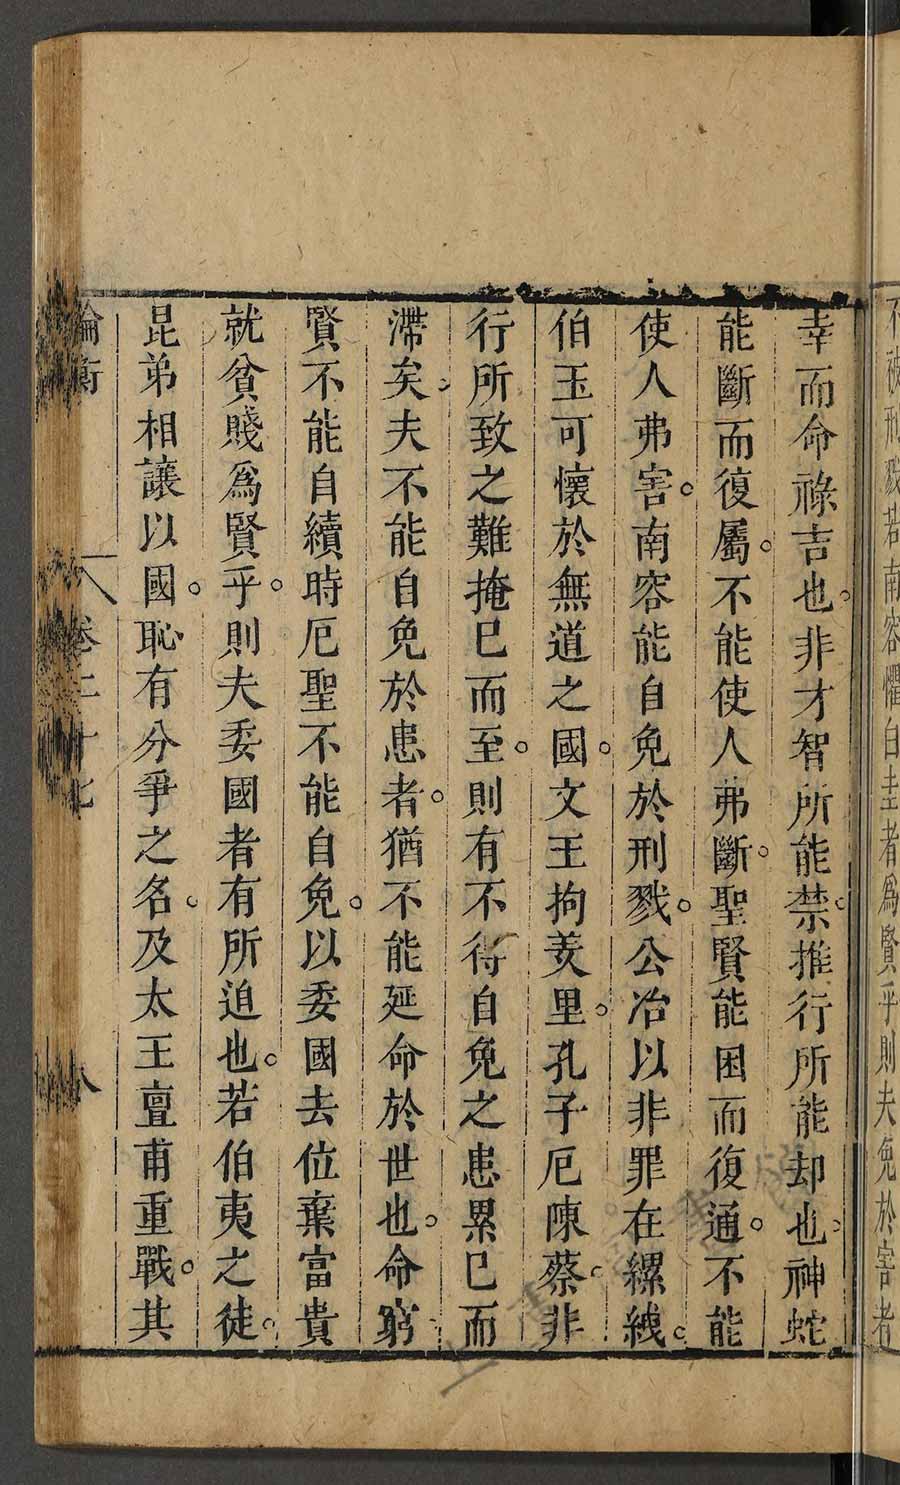 不被刑戮若南容懼白圭者爲賢乎則夫免於害者
幸而命祿吉也。非才智所能禁。推行所能却也。神蛇
能斷而復屬。不能使人弗斷。聖賢能困而復通。不能
使人弗害。南容能自免於刑戮。公冶以非罪在縲絏。
伯玉可懷於無道之國。文王拘羑里。孔子厄陳蔡。非
行所致之難掩已而至。則有不得自免之患累已而
滯矣。夫不能自免於患者。猶不能延命於世也。命窮。
賢不能自續時厄聖不能自免。以委國去位棄富貴
就貧賤爲賢乎。則夫委國者有所迫也。若伯夷之徒。
昆弟相讓以國。恥有分爭之名。及太王亶甫重戰。其
論衡 卷二十七 八